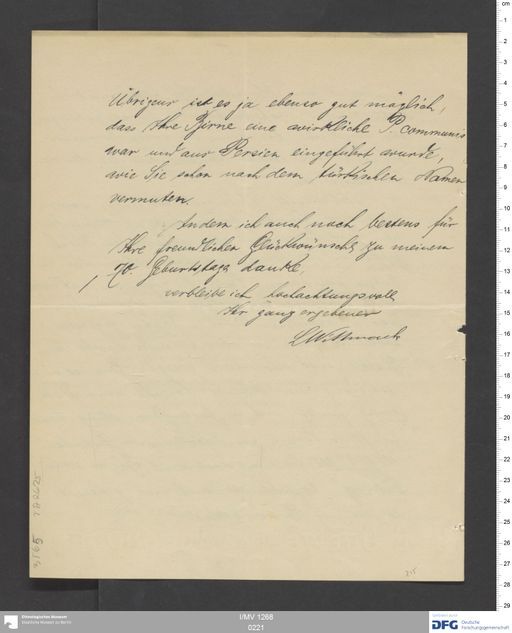 Übrigens ist es ja ebenso gut möglich,
dass Ihre Birne eine wirkliche P. communis
war und aus Persien eingeführt wurde,
wie Sie schon nach dem türkischen Namen
vermuten.
Indem ich auch noch bestens für
Ihre freundlichen Glückwünsche zu meinem
90. Geburtstage danke,
verbleibe ich hochachtungsvoll
Ihr ganz ergebener
L Wittmack
215
Ethnologisches Museum
Staatliche Museen zu Berlin
I/MV 1268
0221
DFG Deutsche
Forschungsgemeinschaft
cm
1
2
3
4
5
6
7
8
9
10
11
12
13
14
15
16
17
18
19
20
21
22
23
24
25
26
27
28
29